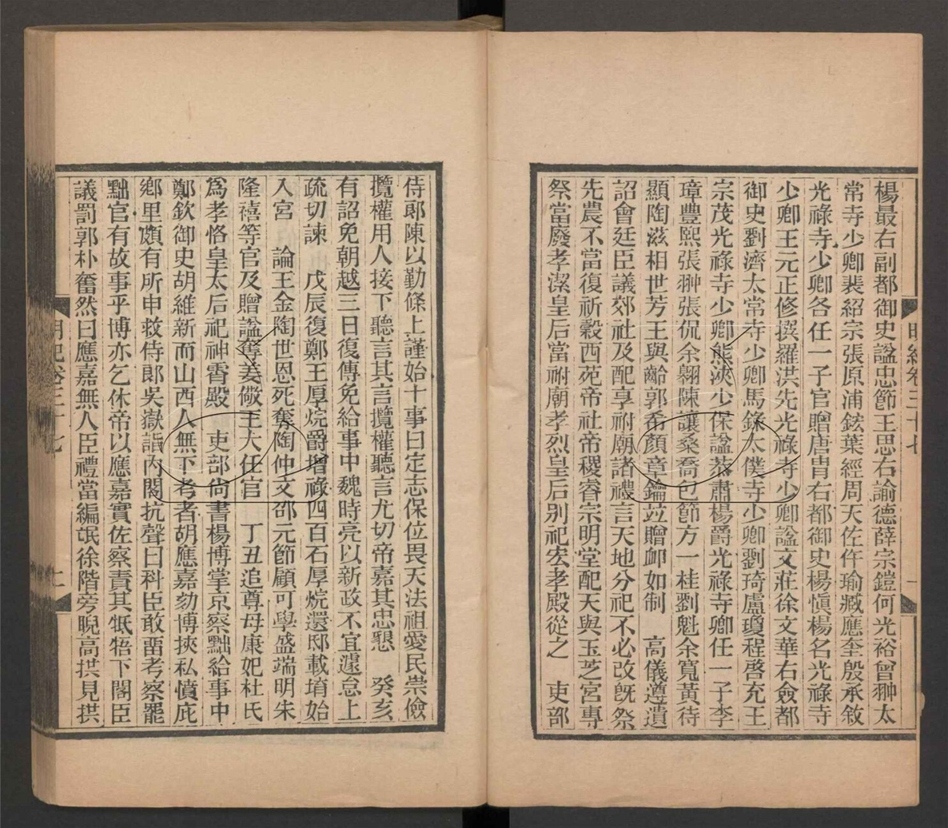 楊最右副都御史諡忠節王思右諭德薛宗鎧何光裕曾翀太
常寺少卿裴紹宗張原浦鋐葉經周天佐仵瑜臧應奎殷承敘
光祿寺少卿各任一子官贈唐冑右都御史楊愼楊名光祿寺
少卿王元正修撰羅洪先光祿寺少卿諡文莊徐文華右僉都
御史劉濟太常寺少卿馬錄太僕寺少卿劉琦盧瓊程啓充王
宗茂光祿寺少卿熊浹少保諡恭肅楊爵光祿寺卿任一子李
璋豐熙張翀張侃余翱陳讓桑喬包節方一桂劉魁余寬黃待
顯陶滋相世芳王與齡郭希顏章鑰竝贈卹如制 高儀遵遺
詔會廷臣議郊社及配享祔廟諸禮言天地分祀不必改旣祭
先農不當復祈穀西苑帝社帝稷睿宗明堂配天與玉芝宮專
祭當廢孝潔皇后當祔廟孝烈皇后别祀宏孝殿從之 吏部
明紀卷三十七
侍郎陳以勤條上謹始十事曰定志保位畏天法祖愛民崇儉
攬權用人接下聽言其言攬權聽言尤切帝嘉其忠懇 癸亥
有詔免朝越三日復傳免給事中魏時亮以新政不宜遽怠上
疏切諫 戊辰復鄭王厚烷爵增祿四百石厚烷還邸載堉始
入宮 論王金陶世恩死奪陶仲文邵元節顧可學盛端明朱
隆禧等官及贈諡奪姜儆王大任官 丁丑追尊母康妃杜氏
爲孝恪皇太后祀神霄殿 吏部尙書楊博掌京察黜給事中
鄭欽御史胡維新而山西人無下考者胡應嘉劾博挾私憤庇
鄕里頗有所申救侍郎吳嶽詣內閣抗聲曰科臣敢畱考察罷
黜官有故事乎博亦乞休帝以應嘉實佐察責其牴牾下閣臣
議罰郭朴奮然曰應嘉無人臣禮當編氓徐階旁睨高拱見拱
明紀卷三十七